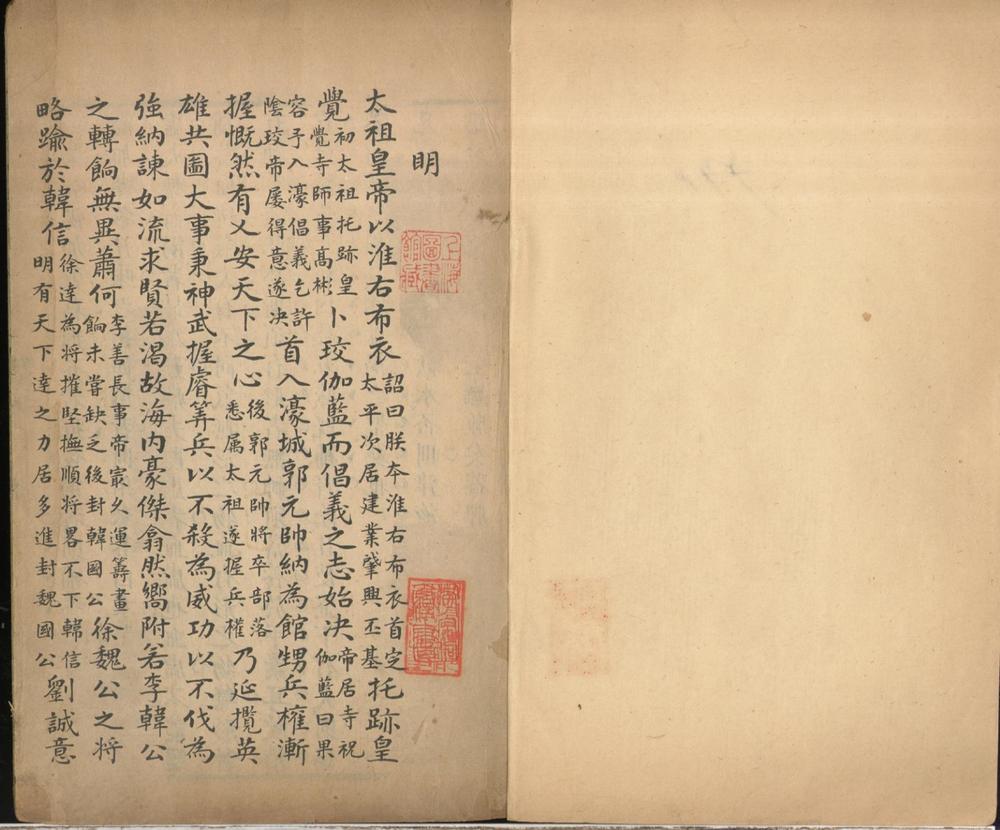 上海圖書館藏
明
太祖皇帝以淮右布衣詔曰朕本淮右布衣首定太平次居建業肇興丕基托跡皇
覺初太祖托跡皇覺寺師事高彬卜珓伽藍而倡義之志始决帝居寺祝伽藍曰果
容予入濠倡義乞許陰珓帝屡得意遂决首入濠城郭元帥納為館甥兵權漸
握慨然有乂安天下之心後郭元帥將卒部落悉属太祖遂握兵權乃延攬英
雄共圖大事秉神武握睿筭兵以不殺為威功以不伐為
強納諫如流求賢若渴故海内豪傑翕然嚮附若李韓公
之轉餉無異蕭何李善長事帝㝡久運籌畫餉未嘗缺乏後封韓國公徐魏公之將
略踰於韓信徐達為將摧堅撫順將畧不下韓信明有天下達之力居多進封魏國公劉誠意